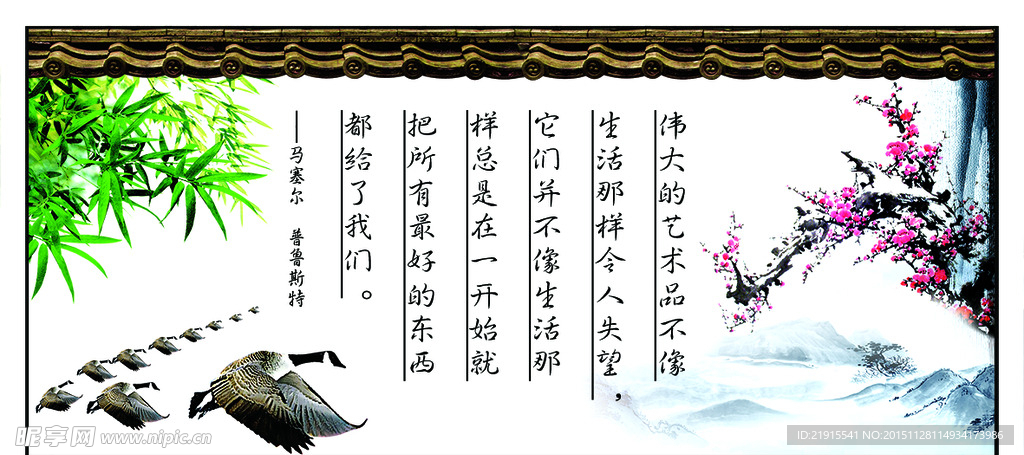 伟大的艺术品不像
生活那样令人失望，
它们并不像生活那
样总是在一开始就
把所有最好的东西
都给了我们。
—马塞尔 普鲁斯特
昵享网 www.nipic.cn
ID:21915541 NO:20151128114934173986